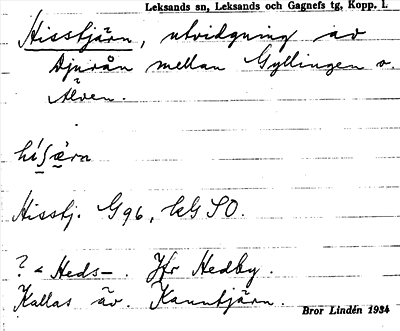 Leksands sn, Leksands och Gagnefs tg, Kopp. L
Hisstjärn, utvidgning av
Djurån mellan Gyllingen o.
Älven.
hi̱ʃæ̱ra
Hisstj. G96, kG SO.
? < Heds-. Jfr Hedby.
Kallas äv. Kanntjärn.
Bror Lindén 1934